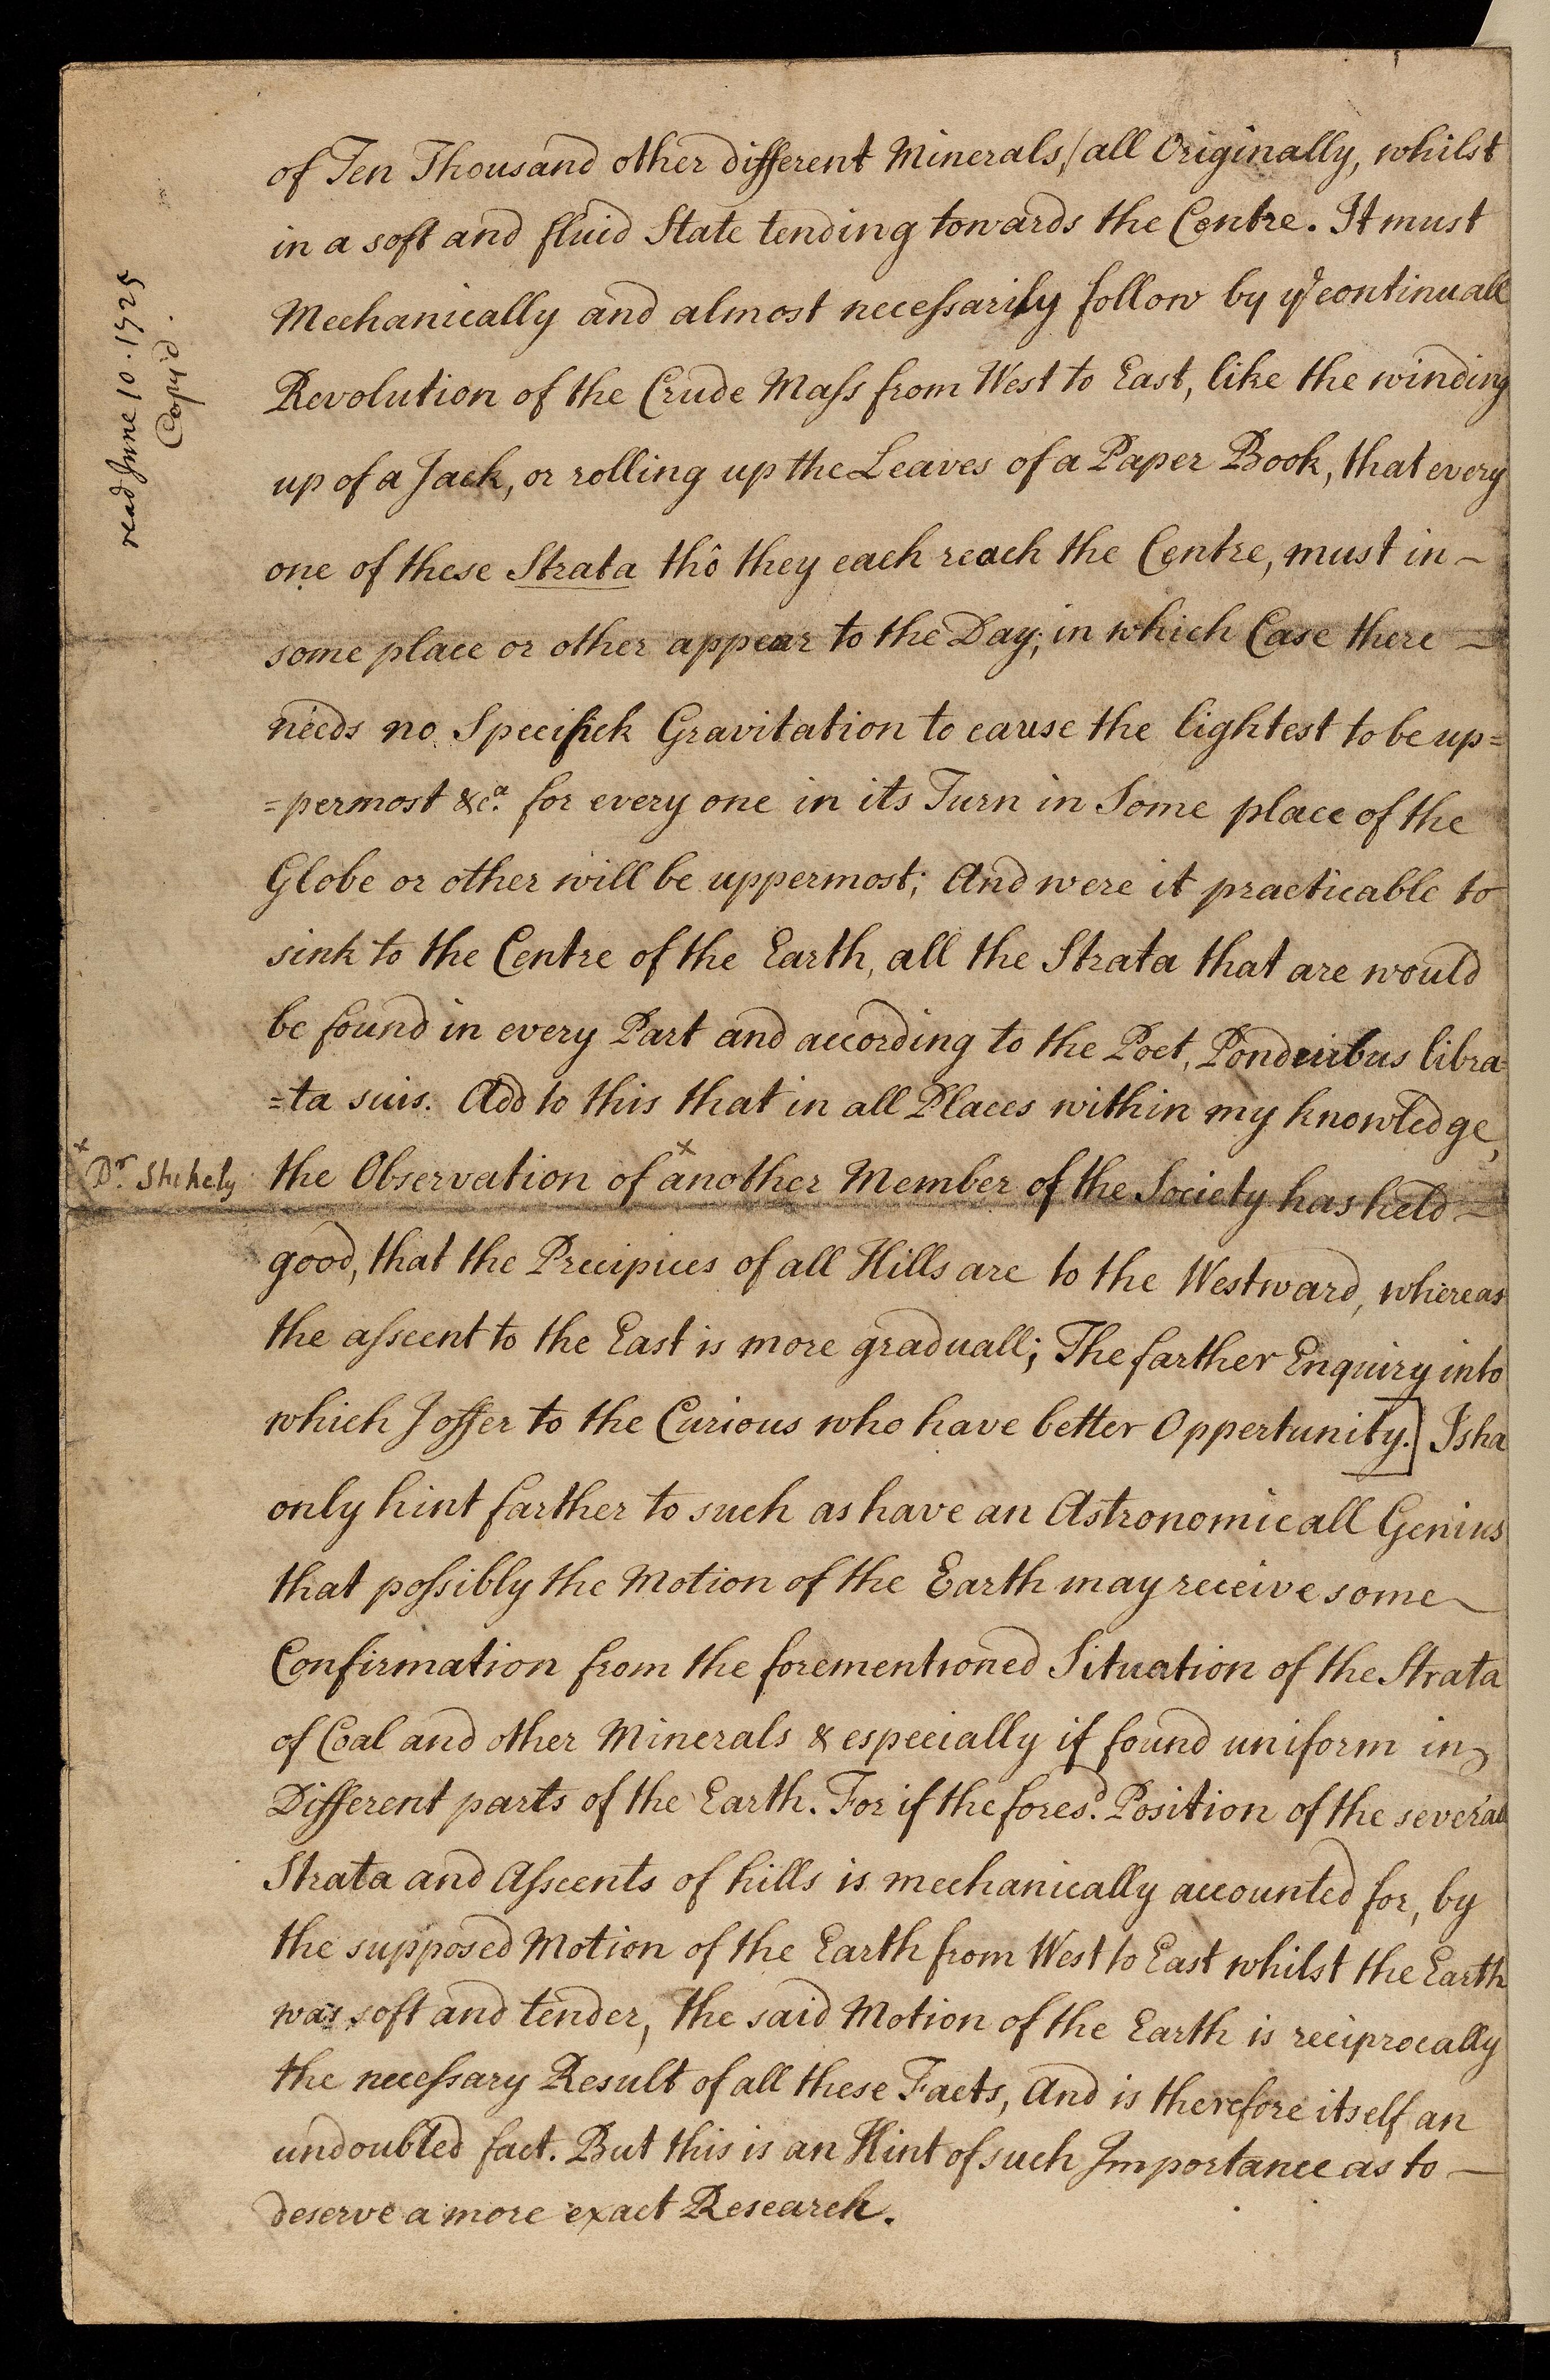 read June 10. 1725
Copy'd.
of Ten Thousand other different Minerals,/all Originally, whilst
in a soft and fluid State tending towards the Centre. It must
Mechanically and almost necessarily follow by yᵉ continuall
Revolution of the Crude Mass from West to East, like the winding
up of a Jack, or rolling up the Leaves of a Paper Book, that every
one of these Strata thô they each reach the Centre, must in-
some place or other appear to the Day; in which Case there —
needs no Specifick Gravitation to cause the lightest to be up=
=permost &cᵃ. for every one in its Turn in Some place of the
Globe or other will be uppermost; And were it practicable to
sink to the Centre of the Earth, all the Strata that are would
be found in every Part and according to the Poet, Ponderibus libra=
=ta suis. Add to this that in all Places within my knowledge,
x
Dʳ. Stukely
the Observation of ˣanother Member of the Society has held —
good, that the Precipices of all Hills are to the Westward, whereas
the assent to the East is more graduall; The farther Enquiry into
which I offer to the Curious who have better Oppertunity.] I sha
only hint farther to such as have an Astronomicall Genius
that possibly the Motion of the Earth may receive some
Confirmation from the forementioned Situation of the Strata
of Coal and other Minerals & especially if found uniform in
Different parts of the Earth. For if the foresᵈ. Position of the several
Strata and Assents of hills is mechanically accounted for, by
the supposed Motion of the Earth from West to East whilst the Earth
was soft and tender, the said Motion of the Earth is reciprocally
the necessary Result of all these Facts, And is therefore itself an
undoubted fact. But this is an Hint of such Importance as to —
deserve a more exact Research.